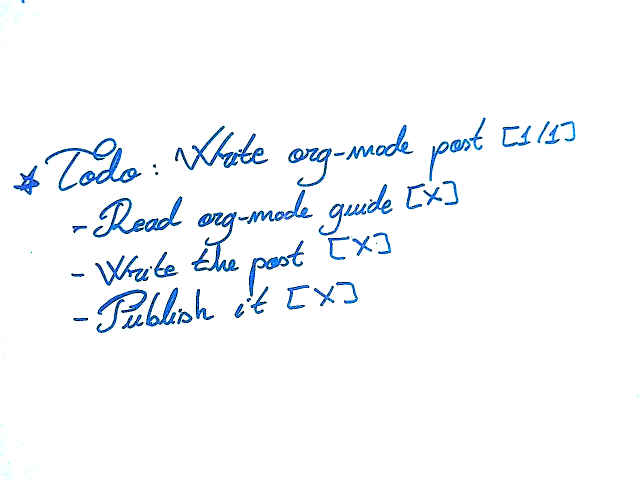 ★ Todo: Write org-mode post [1/1]
- Read org-mode guide [X]
- Write the post [X]
- Publish it [X]